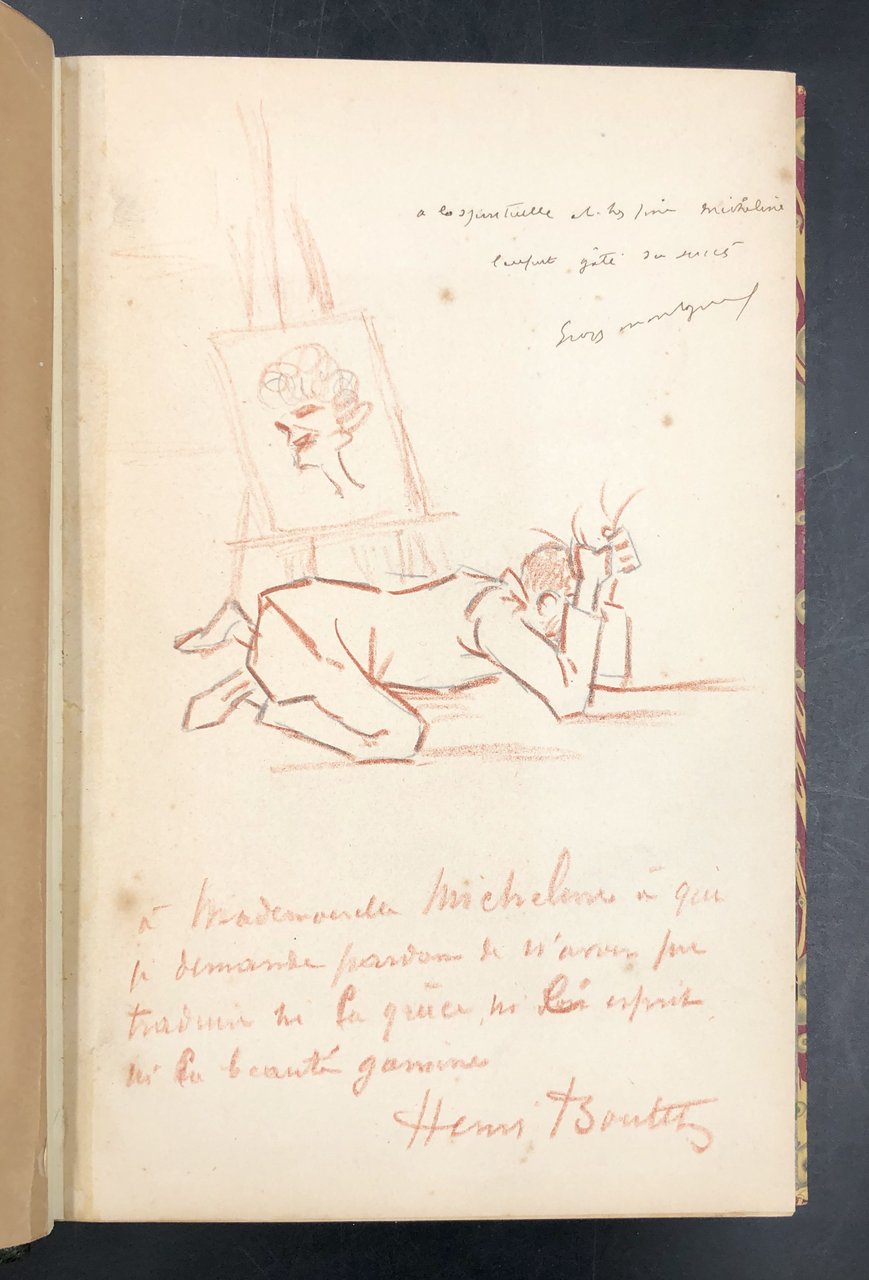 a la spirituelle et très fine Micheline
l'enfant gâté du
Georges Montorgueil
à Mademoiselle Micheline à qui
je demande pardon de n'avoir pu
traduire ni la grâce, ni l'esprit,
ni la beauté gamine
Henri Boutet